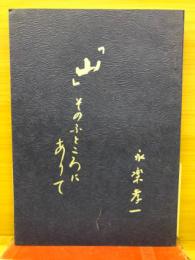 「山」その
ふところに
ありて
永楽孝一